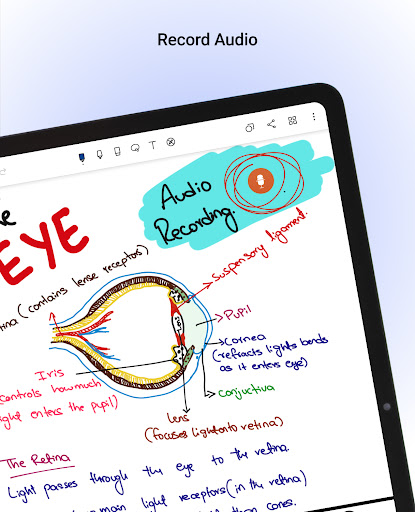 Record Audio
T
Audio
Recording.
EYE
tina (contains lense receptors)
suspensory ligament.
Pupil
Cornea
(refracts lights bends
as it enters eye)
conjuctiva
Iris
controls how much
ight enters the pupil)
Lens
(focuses light onto retina)
The Retina
Light passes through the eye to the retina.
main light receptors (in the retina)
than cones.